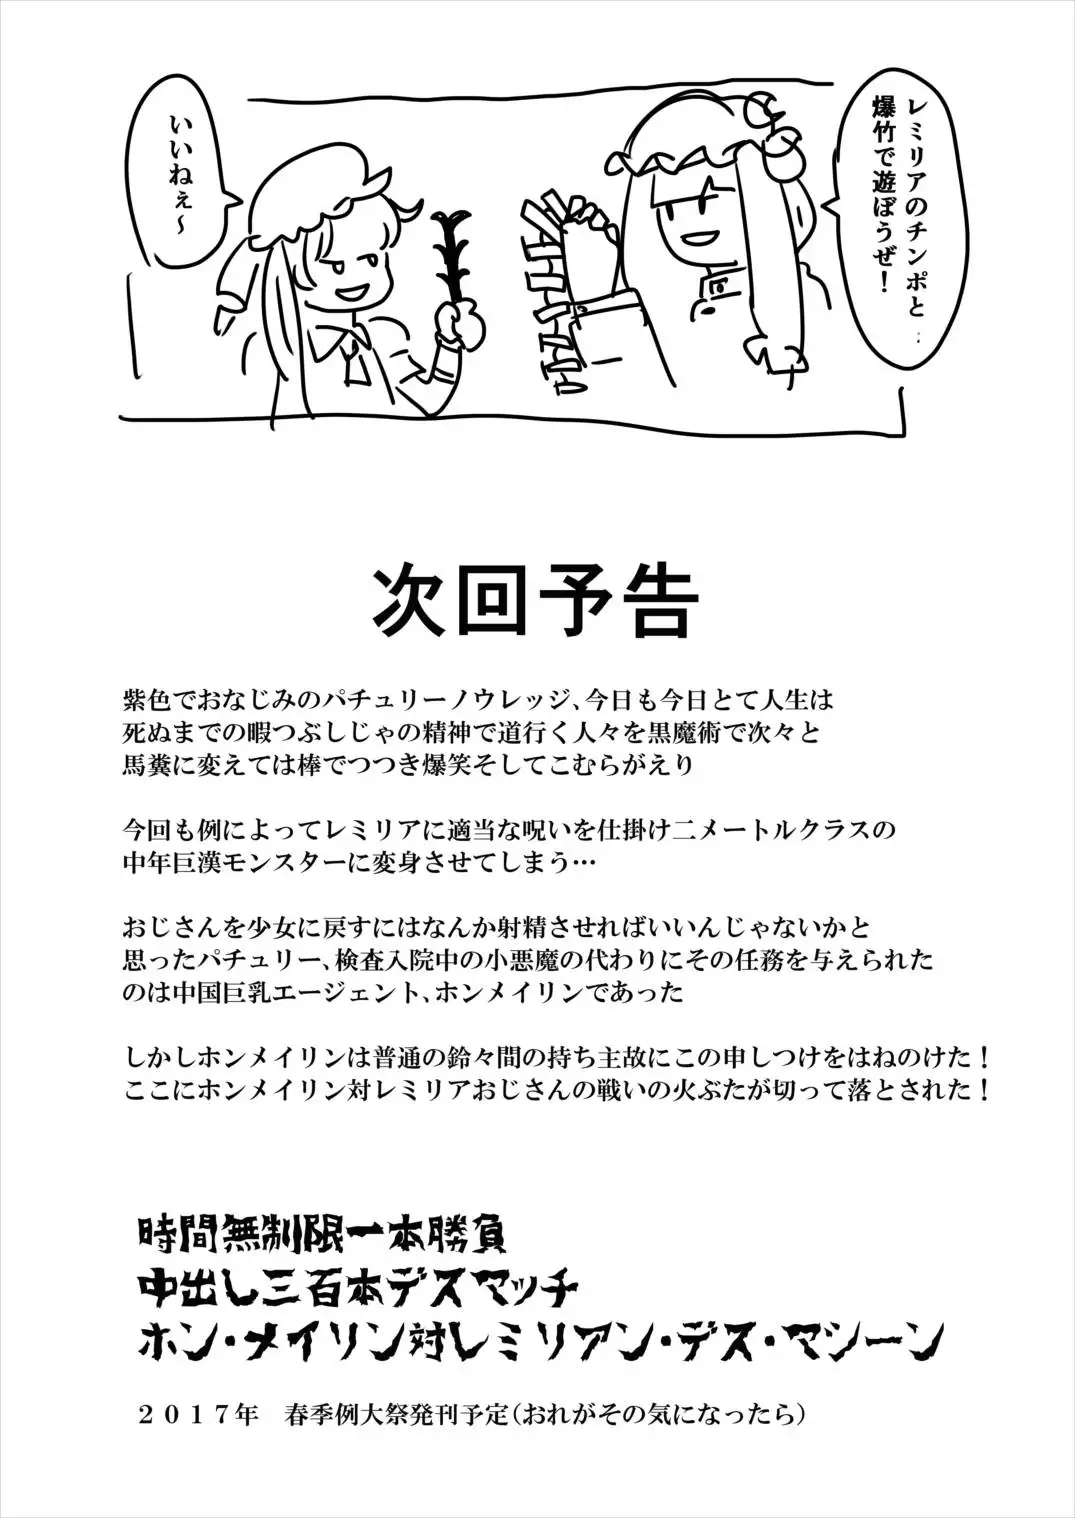 レミリアのチンポと
爆竹で遊ぼうぜ！
いいねぇ～
次回予告
紫色でおなじみのパチュリーノウレッジ、今日も今日とて人生は
死ぬまでの暇つぶしじゃの精神で道行く人々を黒魔術で次々と
馬糞に変えては棒でつつき爆笑そしてこむらがえり
今回も例によってレミリアに適当な呪いを仕掛け二メートルクラスの
中年巨漢モンスターに変身させてしまう…
おじさんを少女に戻すにはなんか射精させればいいんじゃないかと
思ったパチュリー、検査入院中の小悪魔の代わりにその任務を与えられた
のは中国巨乳エージェント、ホンメイリンであった
しかしホンメイリンは普通の鈴々間の持ち主故にこの申しつけをはねのけた！
ここにホンメイリン対レミリアおじさんの戦いの火ぶたが切って落とされた！
時間無制限一本勝負
中出し三百本デスマッチ
ホン・メイリン対レミリアン・デス・マシーン
２０１７年　春季例大祭発刊予定（おれがその気になったら）